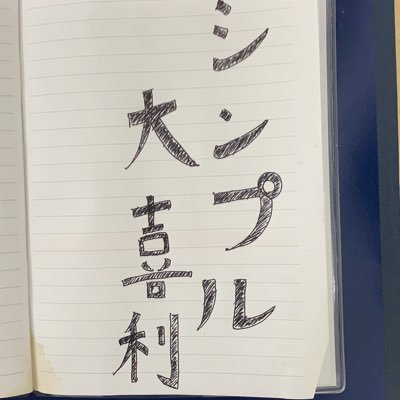 シンプル
大喜利